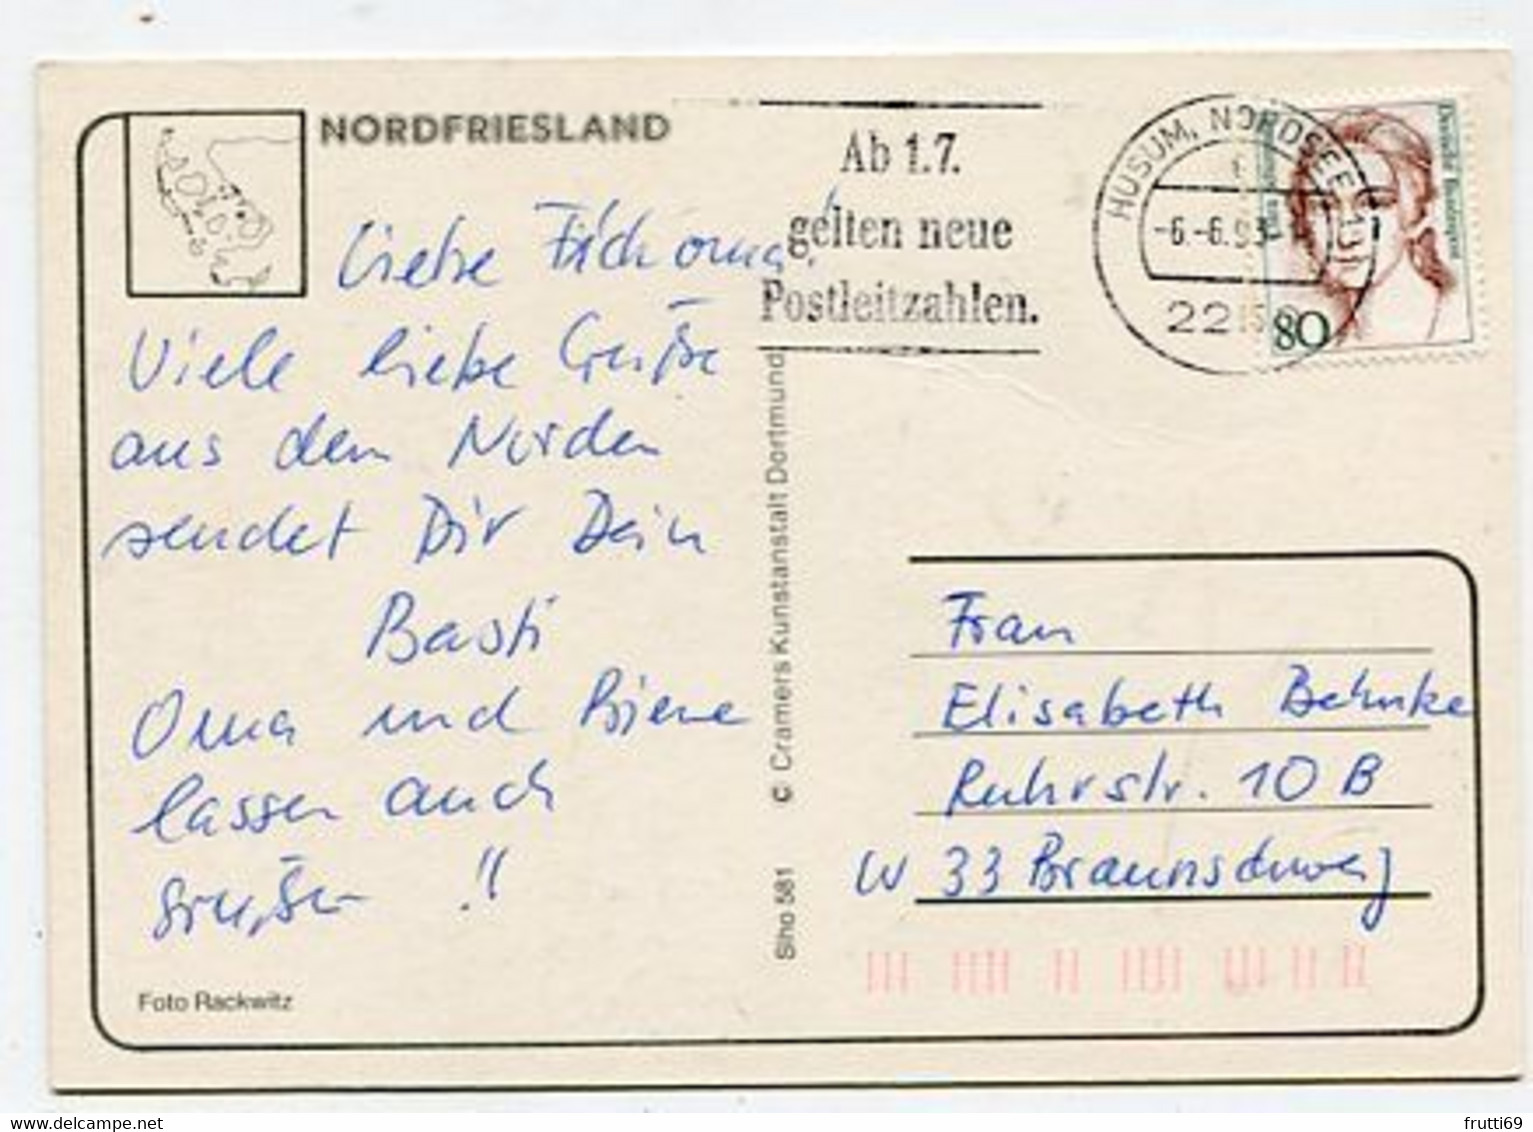 NORDFRIESLAND
Liebe Fischoma!
Viele liebe Grüße
aus dem Norden
sendet Dir Dein
Basti
Oma und Biene
lassen auch
grüßen!!
Foto Rackwitz
Siho 581 © Cramers Kunstanstalt Dortmund
Ab 1.7.
gelten neue
Postleitzahlen.
HUSUM, NORDSEE 1
-6.-6.93
22
80
Deutsche Bundespost
Frau
Elisabeth Behnke
Ruhrstr. 10 B
W 33 Braunschweig
frutti69